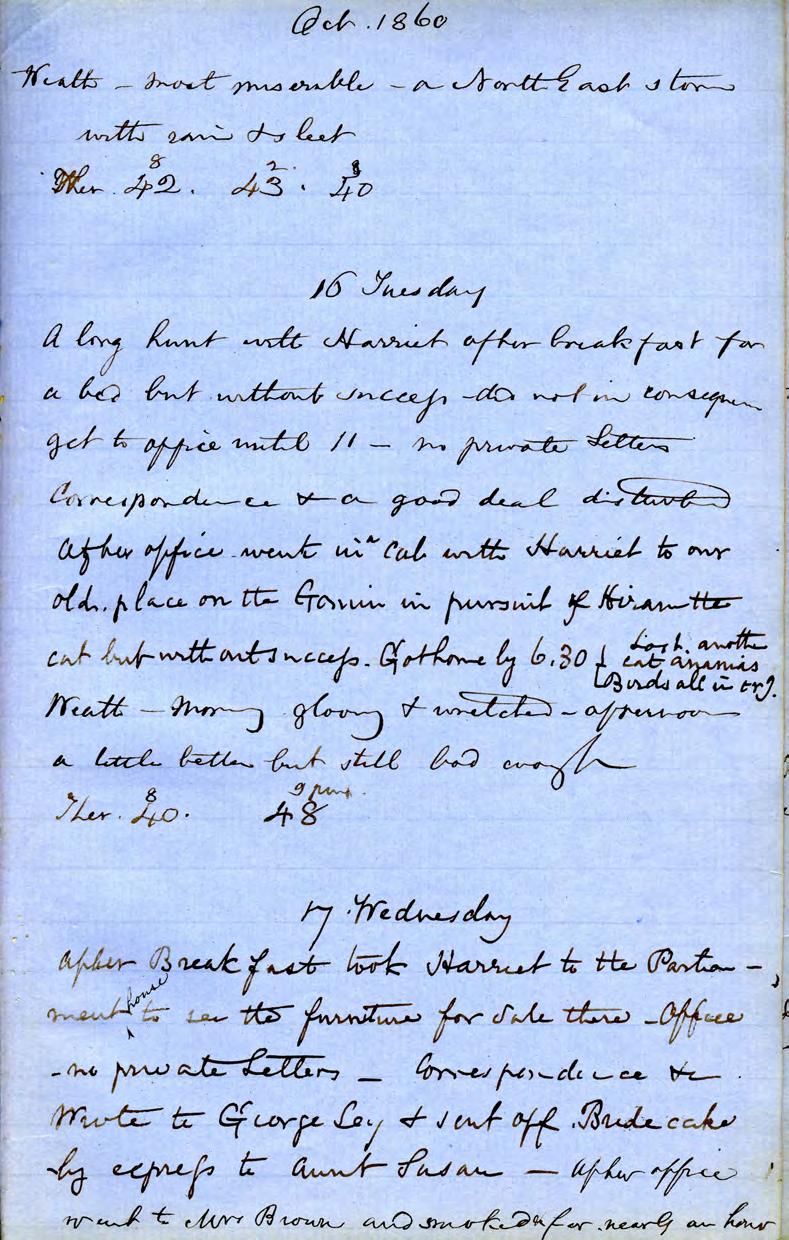 Oct. 1860
Weath - most miserable - a North East storm
with rain & sleet
8 2 8
Ther. 42. 43. 40
16 Tuesday
A long hunt with Harriet after breakfast for
a bed but without success - did not in consequen
get to office until 11 - no private Letters
Correspondence & a good deal disturbed
After office went in a cab with Harriet to our
old place on the in pursuit of Hiram the
cat but without success. Got home by 6.30 [Lost another
cat ananias
Birds all in
Weath - Morng gloomy & wretched - afternoon
a little better but still bad enough
8 9 p.m.
Ther. 40. 48
17 Wednesday
After Breakfast took Harriet to the Parlia-
ment house to see the furniture for Sale there - Office
- no private Letters - Correspondence &c
Wrote to George Ley & sent off Bride cake
by express to Aunt Susan - After office
went to Mrs Brown and smoked for nearly an hour